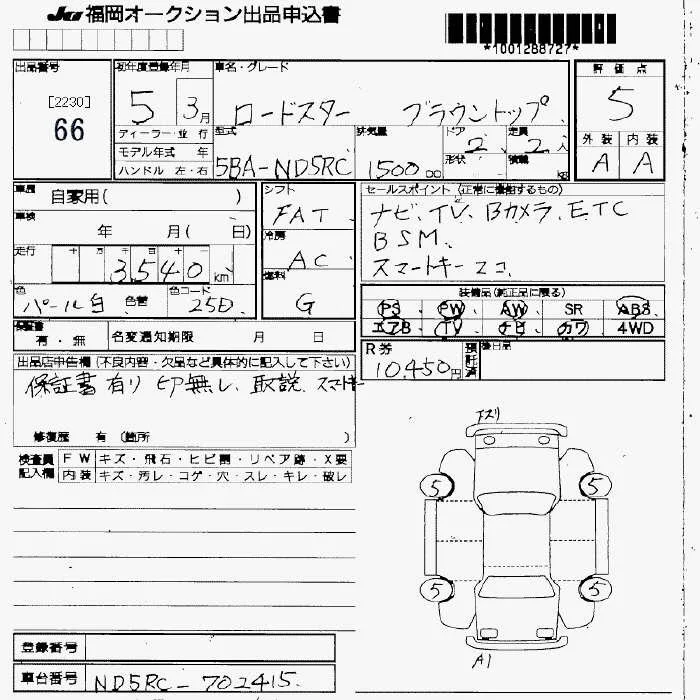 JU福岡オークション出品申込書
*1001288727*
出品番号
[2230]
66
初年度登録年月
5 3月
車名・グレード
ロードスター ブラウントップ
評価点
5
外装 内装
A A
ディーラー・並行
モデル年式 年
ハンドル 左・右
型式
5BA-ND5RC
排気量
1500 cc
ドア
2
形状
定員
2人
積載
kg
車歴
自家用( )
車検
年 月( 日)
走行
十 万 千 百 十
3540 km
色
パール白 色替
色コード
25D
シフト
FAT
冷房
AC
燃料
G
セールスポイント (正常に稼働するもの)
ナビ、TV、Bカメラ、ETC
BSM、
スマートキー2コ
装備品(純正品に限る)
PS PW AW SR ABS
エアB TV ナビ カワ 4WD
保証書
有・無
名変通知期限 月 日
R券
10,450円
預託済
後日品
出品店申告欄 (不良内容・欠品など具体的に記入して下さい)
保証書有り 印無し、取説、スマートキー
修復歴 有 (箇所 )
検査員記入欄
FW キズ・飛石・ヒビ割・リペア跡・X要
内装 キズ・汚レ・コゲ・穴・スレ・キレ・破レ
スリ
5 5
5 5
A1
登録番号
車台番号
ND5RC-702415